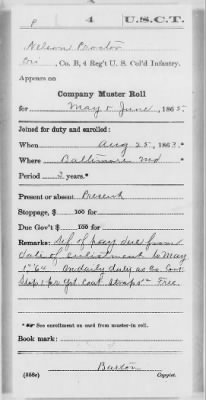 P 4 U.S.C.T.
Nelson Proctor
Pri, Co. B, 4 Reg't U. S. Col'd Infantry.
Appears on
Company Muster Roll
for May & June, 1865.
Joined for duty and enrolled:
When Aug 25, 1863.*
Where Baltimore Md
Period 3 years.*
Present or absent Present
Stoppage, $ 100 for
Due Gov't $ 100 for
Remarks: Dif of pay due from
date of enlistment to May
1st/64 On daily duty as Co. Cook
Stop 1 pr Gt Coat straps Free.
* See enrollment on card from muster-in roll.
Book mark:
Barton
(358c) Copyist.